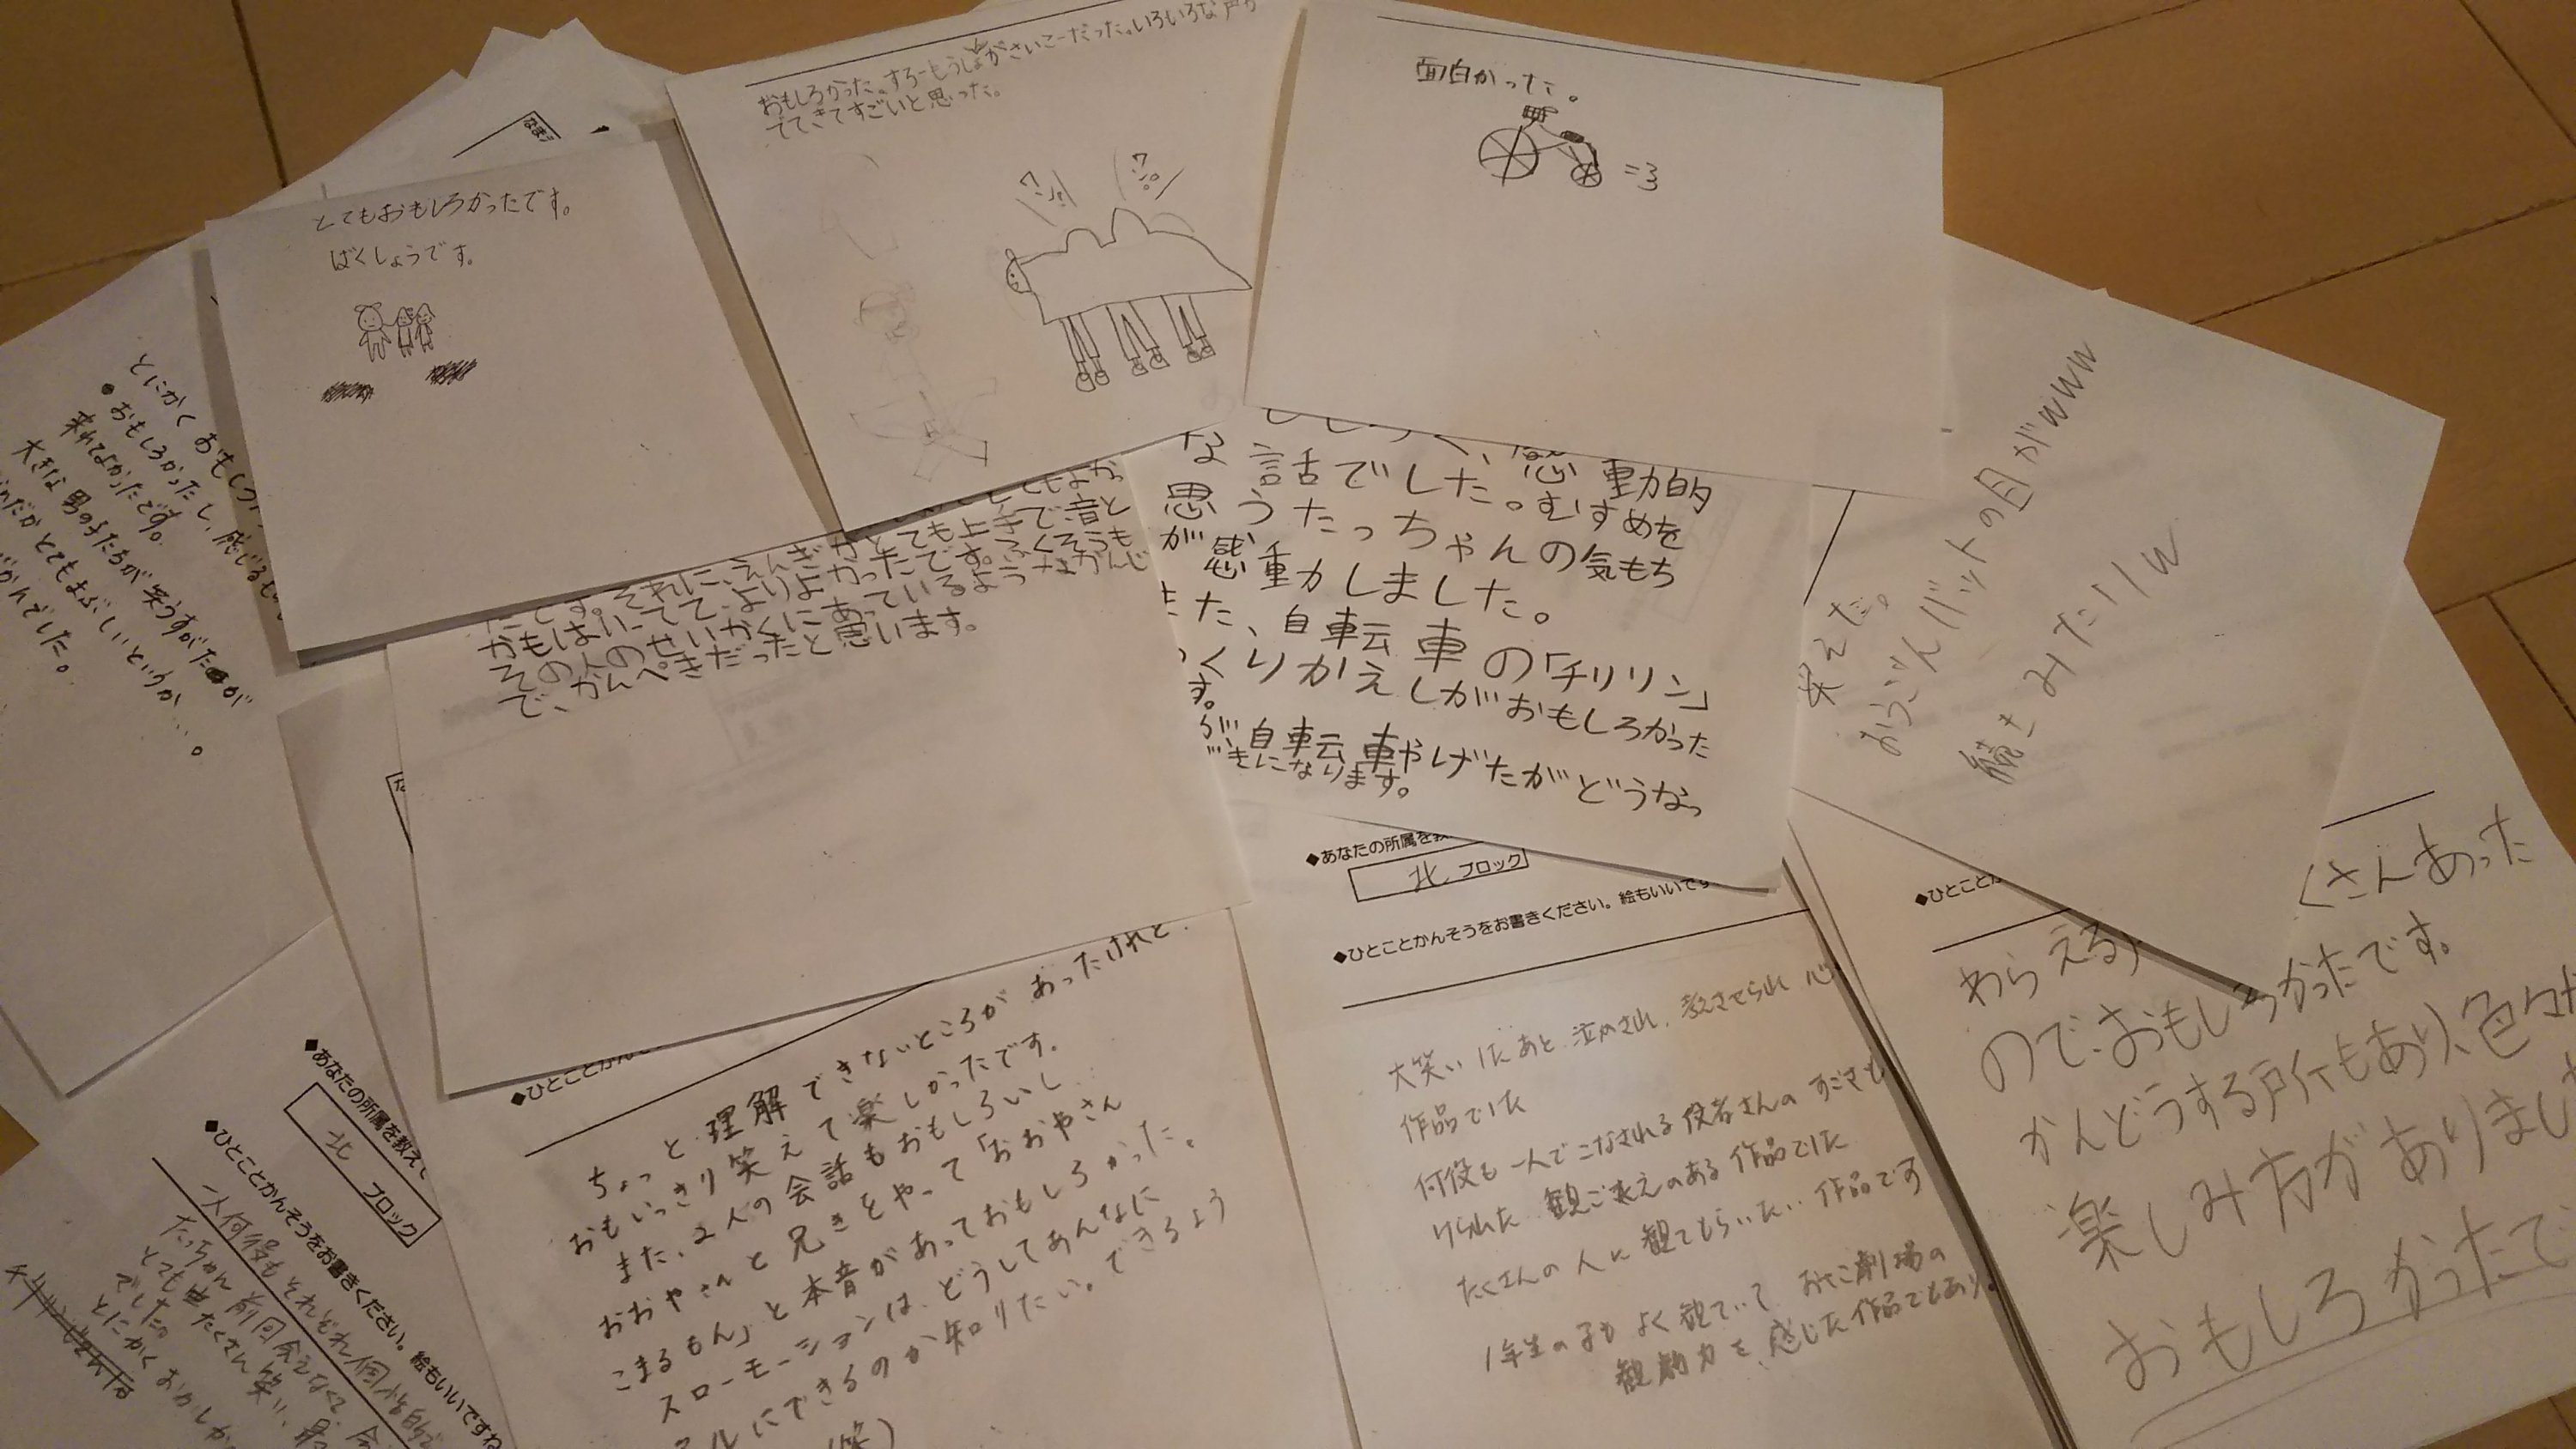 おもしろかった。すろーもうしょんがさいこーだった。いろいろな
でてきてすごいと思った。
面白かった。
なまえ
とてもおもしろかったです。
ばくしょうです。
とにかく おもしろ
●おもしろかったし、感じるも
来れてよかったです。
大きな男の子たちが笑うすがたが
だかとてもまぶしいというか…。
でした。
とても上手で音と
たです。それに、えんぎ
かもはいってて、よりよかったです。ふくそうも
その人のせいかくにあっているようなかんじ
で、かんぺきだったと思います。
感動的
な話でした。むすめを
思うたっちゃんの気もち
が感動しました。
また、自転車の「チリリン」
くりかえしがおもしろかった
す。
自転車やげたがどうなっ
きになります。
笑えた。
おうごんバットの目がwww
続きみたいw
◆あなたの所属を教
北 ブロック
◆ひとことかんそうをお書きください。絵もいいです
大笑いしたあと、泣かされ、考えさせられ 心
作品でした
何役も一人でこなされる役者さんのすごさも
観ごたえのある作品でした
たくさんの人に観てもらいたい作品です
1年生の子もよく観ていて おやこ劇場の
観劇力を感じた作品でもあり
◆ひとことか
くさんあった
わらえる
のでおもしろかったです。
かんどうする所もあり、色々
楽しみ方がありまし
おもしろかったで
◆ひとことかん
ちょっと理解できないところがあったけれど
おもいっきり笑えて楽しかったです。
また、2人の会話もおもしろいし
おおやさんと兄きとやって「おおやさん
こまるもん」と本音があっておもしろかった。
スローモーションは、どうしてあんなに
ルにできるのか知りたい。できるよう
(笑)
◆あなたの所属を教えて
北 ブロック
◆ひとことかんそうをお書きください。絵もいいですね
一人何役もそれぞれ個性的で
たっちゃん 前回会えなくて、
とても たくさん笑い、
でした。
とにかく おかしか